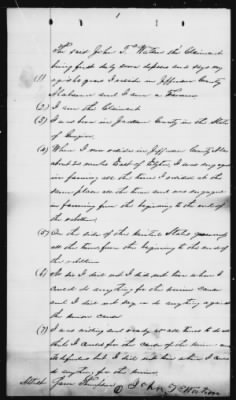 The said John T. Watson the Claimant
being first duly sworn deposes and says my
age is I reside in Jefferson County
Alabama and I am a Farmer
(2) I am the Claimant
(3) I was born in Jackson County in the State
of Georgia
(4) When I was resides in Jefferson County Ala
about miles East of Elyton, I was engaged
in farming all the time I resided at the
same place all the time and was engaged
in farming from the beginning to the end of
the rebellion
(5) On the side of the United States government
all the time from the beginning to the end of
the rebellion
(6) No Sir I did not I did not when I
could do anything for the union cause
and I did not say or do anything against
the union cause
(7) I was willing and ready at all times to do
what I could for the cause of the union and
its but I did not when I could
do anything for the union
Attest John T Watson